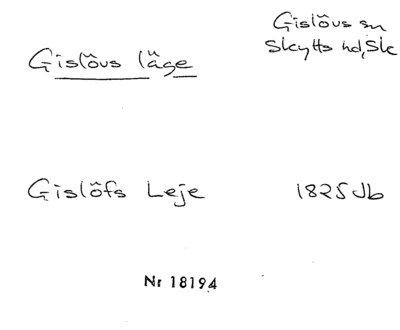 Gislövs sn
Skytts hd, Sk
Gislövs läge
Gislöfs Leje 1825 Jb
Nr 18194